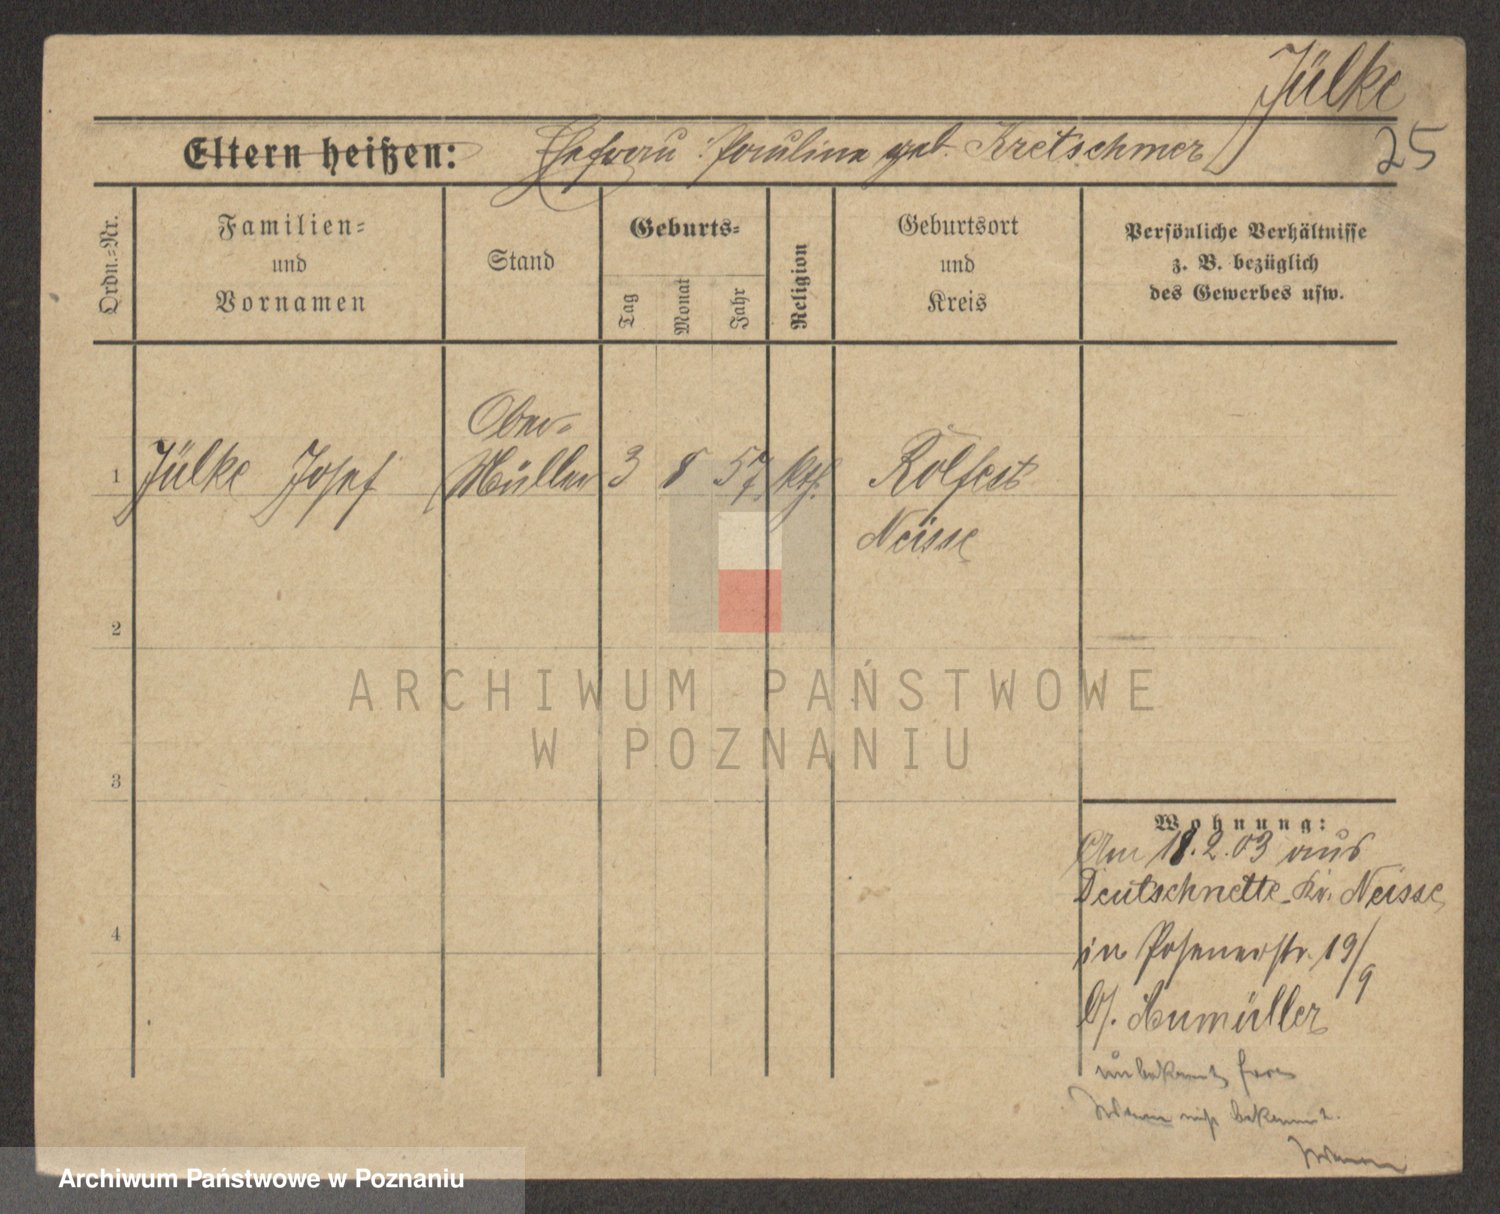 Jülke
25
Eltern heißen: Ehefrau: Pauline geb. Kretschmer
Ordn.-Nr.
Familien-
und
Vornamen
Stand
Geburts-
Tag
Monat
Jahr
Religion
Geburtsort
und
Kreis
Persönliche Verhältnisse
z. B. bezüglich
des Gewerbes usw.
Ober-
1 Jülke Josef Müller 3 8 57 kth.
Neisse
2
3
4
Wohnung:
Am 18.2.03 aus
Deutschnette Kr. Neisse
in Posenerstr. 19/9
b/.
unbekannt
bekannt.
ARCHIWUM PAŃSTWOWE
W POZNANIU
Archiwum Państwowe w Poznaniu